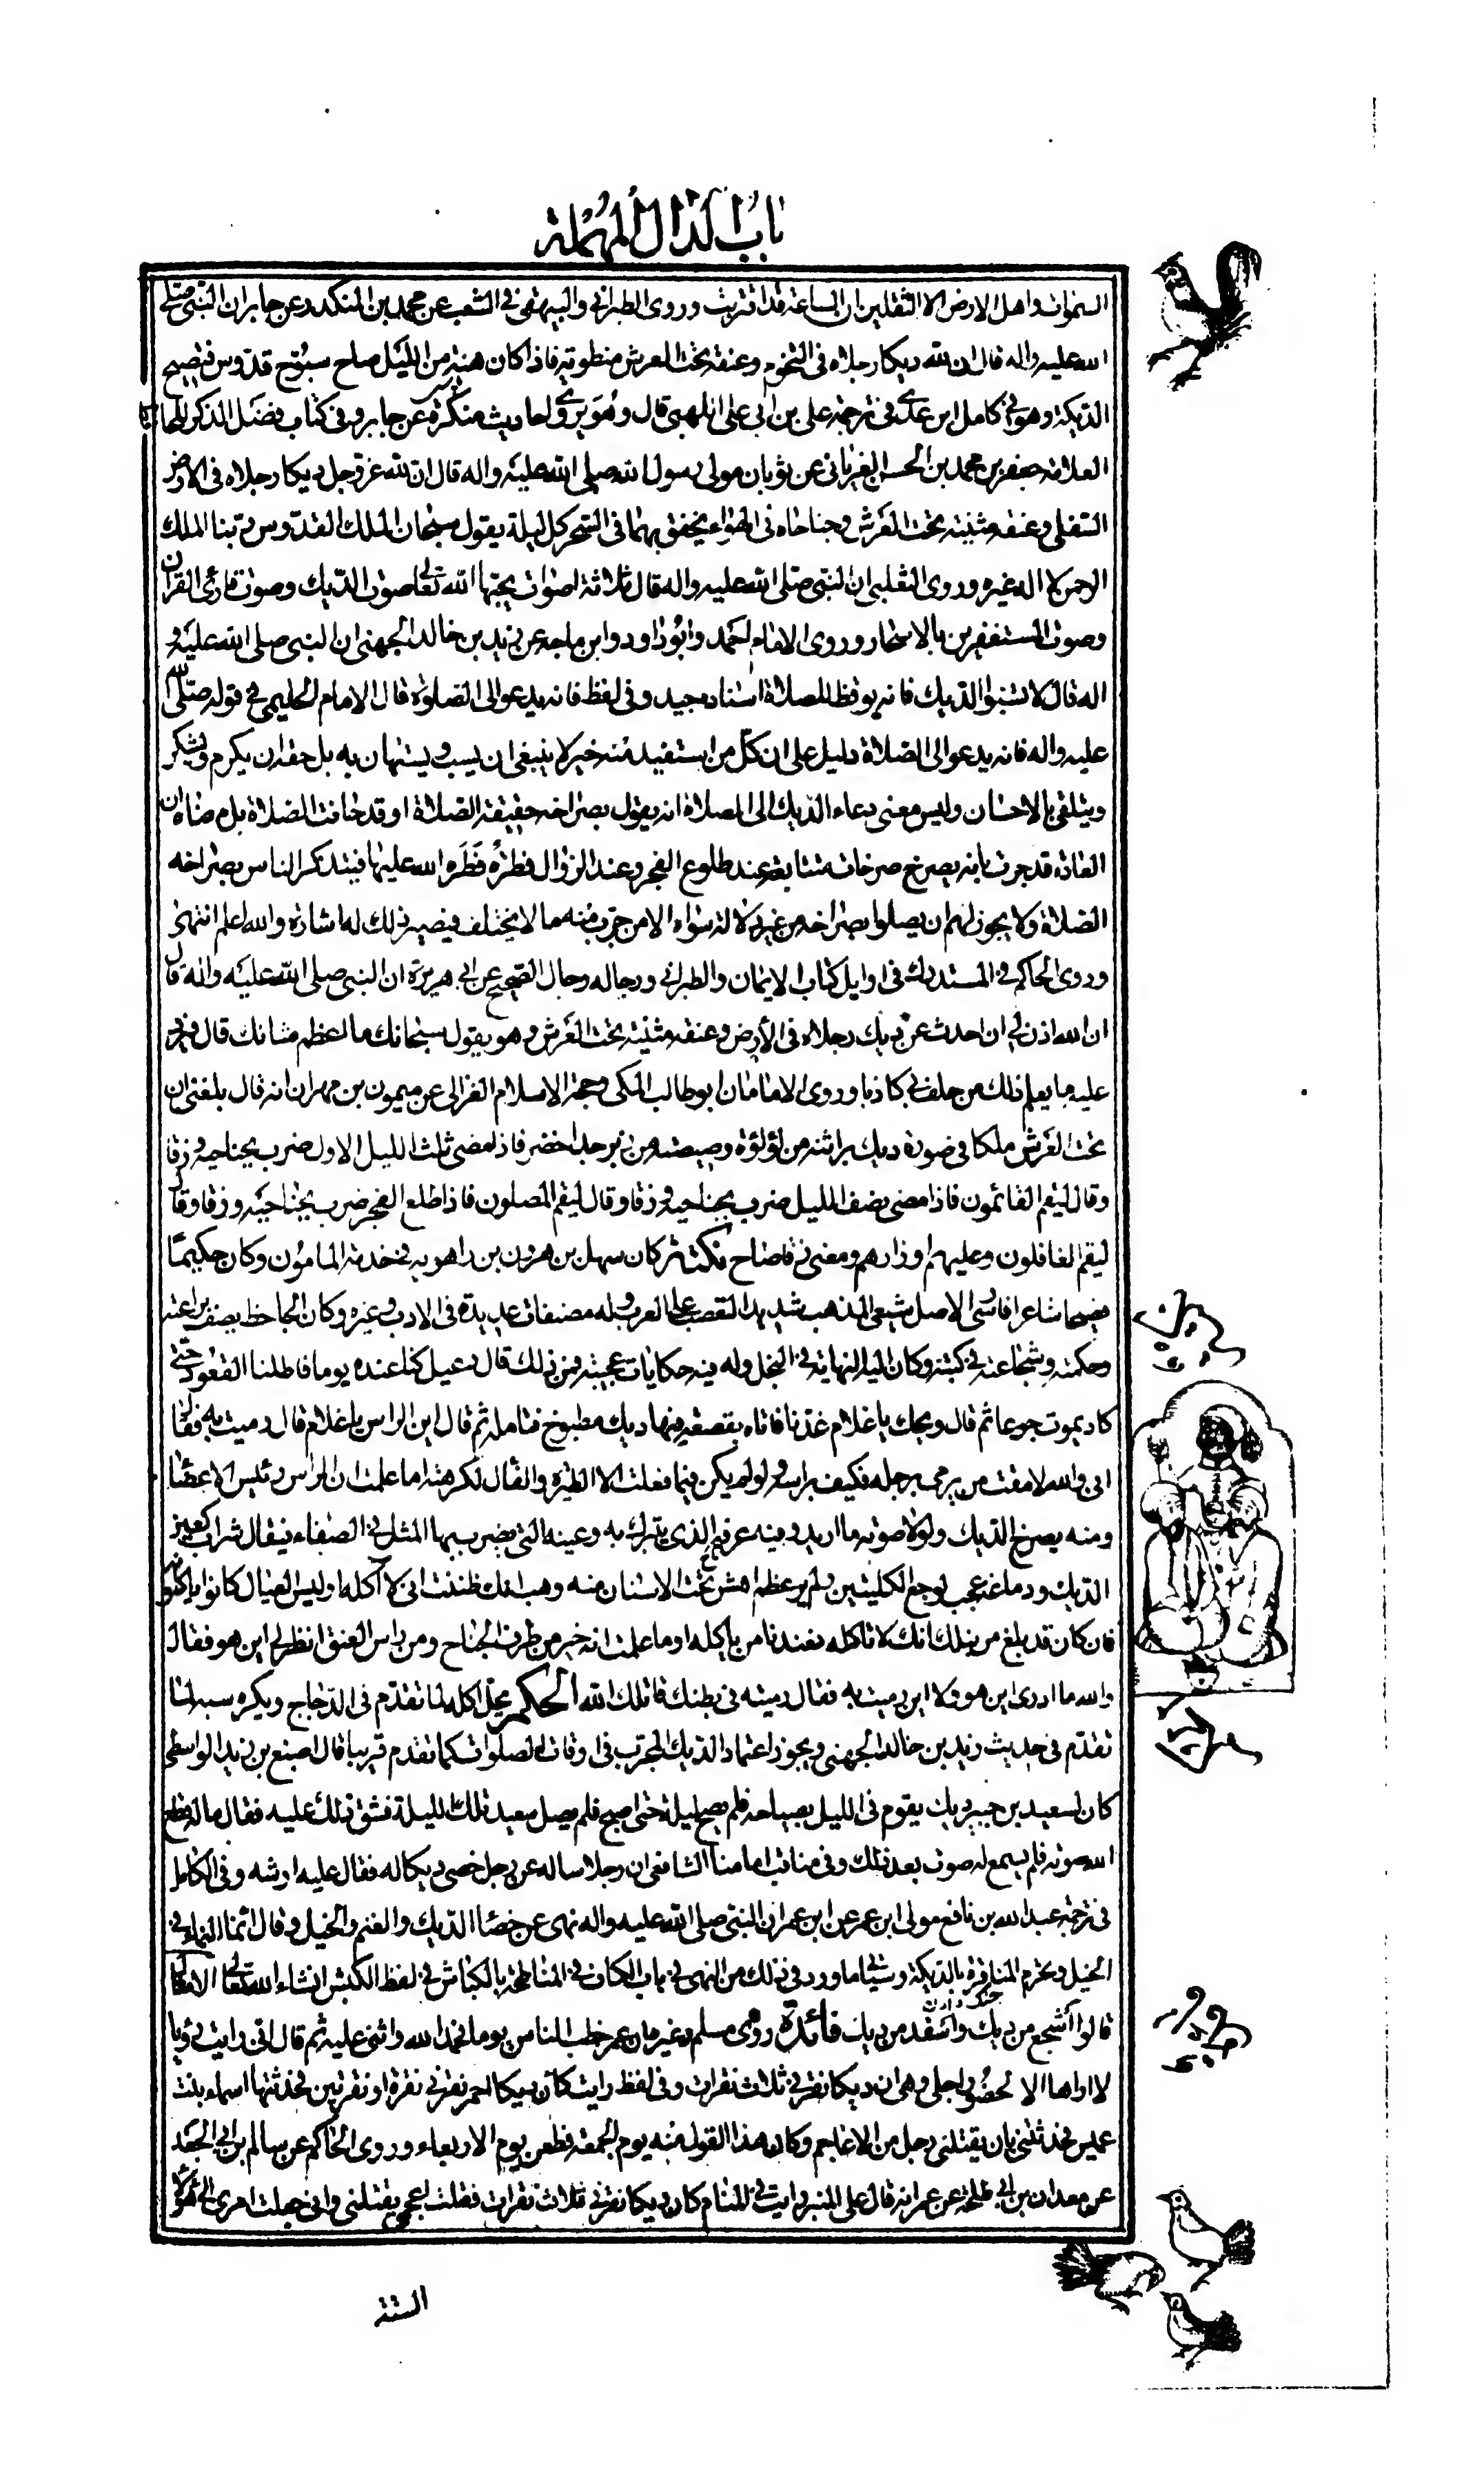 باب الدال المهملة
السموات واهل الارض الا الثقلين ان الساعة قد اقتربت وروى الطبراني والبيهقي في الشعب عن محمد بن المنكدر عن جابر ان النبي صلى
الله عليه واله قال ان لله ديكا رجلاه في التخوم وعنقه تحت العرش منطوية فاذا كان هنة من الليل صاح سبوح قدوس فتصيح
الديكة وهو في كامل ابن عدي في ترجمة علي بن ابي علي اللهبي قال وهو يروي احاديث منكرة عن جابر وفي كتاب فضل الذكر للحافظ
العلامة جعفر بن محمد بن الحسن الفريابي عن ثوبان مولى رسول الله صلى الله عليه واله قال ان لله عز وجل ديكا رجلاه في الارض
السفلى وعنقه مثنية تحت العرش وجناحاه في الهواء يخفق بهما في السحر كل ليلة يقول سبحان الملك القدوس ربنا الملك
الرحمن لا اله غيره وروى الثعلبي ان النبي صلى الله عليه واله قال ثلاثة اصوات يحبها الله تعالى صوت الديك وصوت قارئ القران
وصوت المستغفرين بالاسحار وروى الامام احمد وابو داود وابن ماجه عن زيد بن خالد الجهني ان النبي صلى الله عليه و
اله قال لا تسبوا الديك فانه يوقظ للصلاة اسناده جيد وفي لفظ فانه يدعو الى الصلوة قال الامام الحليمي في قوله صلى الله
عليه واله فانه يدعو الى الصلاة دليل على ان كل من استفيد منه خير لا ينبغي ان يسب ويستهان به بل حقه ان يكرم ويشكر
ويتلقى بالاحسان وليس معنى دعاء الديك الى الصلاة انه يقول بصراخه حقيقة الصلاة او قد حانت الصلاة بل معناه ان
العادة قد جرت بانه يصرخ صرخات متتابعة عند طلوع الفجر وعند الزوال فطرة فطره الله عليها فيتذكر الناس بصراخه
الصلاة ولا يجوز لهم ان يصلوا بصراخه من غير دلالة سواه الا من جرب منه ما لا يختلف فيصير ذلك له اشارة والله اعلم انتهى
وروى الحاكم في المستدرك في اوايل كتاب الايمان والطبراني ورجاله رجال الصحيح عن ابي هريرة ان النبي صلى الله عليه واله قال
ان الله اذن لي ان احدث عن ديك رجلاه في الأرض وعنقه مثنية تحت العرش وهو يقول سبحانك ما اعظم شانك قال فيرد
عليه ما يعلم ذلك من حلف بي كاذبا وروى الامامان ابو طالب المكي وحجة الاسلام الغزالي عن ميمون بن مهران انه قال بلغني ان
تحت العرش ملكا في صورة ديك براثنه من لؤلؤة وصيصته من زبرجد اخضر فاذا مضى ثلث الليل الاول ضرب بجناحيه وزقا
وقال ليقم القائمون فاذا مضى نصف الليل ضرب بجناحيه وزقا وقال ليقم المصلون فاذا طلع الفجر ضرب بجناحيه وزقا وقال
ليقم الغافلون وعليهم اوزارهم ومعنى زقا صاح نكتة كان سهل بن هرون بن راهويه في خدمة المامون وكان حكيما
فصيحا شاعرا فارسي الاصل شيعي المذهب شديد التعصب على العرب وله مصنفات عديدة في الادب وغيره وكان الجاحظ يصف براعته
وحكمته وشجاعته في كتبه وكان اليه النهاية في البخل وله فيه حكايات عجيبة فمن ذلك قال دعبل كنا عنده يوما فاطلنا القعود حتى
كاد يموت جوعا ثم قال ويحك ياغلام غدنا فاتاه بقصعة فيها ديك مطبوخ فتامله ثم قال اين الراس ياغلام قال رميت به فقال
اني والله لامقت من يرمي برجله فكيف براسه ولو لم يكن فيما فعلت الا الطيرة والفال لكرهته اما علمت ان الراس رئيس الاعضا
ومنه يصرخ الديك ولولا صوته ما اريد وفيه عرفه الذي يتبرك به وعينه التي يضرب بها المثل في الصفاء فيقال شراب كعين
الديك ودماغه عجب لوجع الكليتين ولم ير عظم اهش تحت الاسنان منه وهب انك ظننت اني لا اكله اوليس العيال كانوا ياكلونه
فان كان قد بلغ من نبلك انك لا تاكله فعندنا من ياكله اوما علمت انه خير من طرف الجناح ومن راس العنق انظر لي اين هو فقال
والله ما ادري اين هو ولا اين رميت به فقال رميته في بطنك قاتلك الله الحكم يحل اكله لما تقدم في الدجاج ويكره سبه لما
تقدم في حديث زيد بن خالد الجهني ويجوز اعتماد الديك المجرب في اوقات الصلوات كما تقدم قريبا قال اصبغ بن زيد الواسطي
كان لسعيد بن جبير ديك يقوم في الليل بصياحه فلم يصح ليلة حتى اصبح فلم يصل سعيد تلك الليلة فشق ذلك عليه فقال ما له قطع
الله صوته فلم يسمع له صوت بعد ذلك وفي مناقب امامنا الشافعي ان رجلا ساله عن رجل خصى ديكا له فقال عليه ارشه وفي الكامل
في ترجمة عبد الله بن نافع مولى ابن عمر عن ابن عمر ان النبي صلى الله عليه واله نهى عن خصا الديك والغنم والخيل وقال انما النماء في
الخيل وتحرم المناقرة بالديكة وسياتي ما ورد في ذلك من النهي في باب الكاف في المناطحة بالكباش في لفظ الكبش انشاء الله تعالى الامثال
جنك دادن
قالوا اشجع من ديك واسفد من ديك فائدة روى مسلم وغيره ان عمر خطب الناس يوما فحمد الله واثنى عليه ثم قال اني رايت رؤيا
لا اراها الا لحضور اجلي وهي ان ديكا نقرني ثلاث نقرات وفي لفظ رايت كان ديكا احمر نقرني نقرة او نقرتين فحدثتها اسماء بنت
عميس فحدثتني بان يقتلني رجل من الاعاجم وكان هذا القول منه يوم الجمعة فطعن يوم الاربعاء وروى الحاكم عن سالم بن ابي الجعد
عن معدان بن ابي طلحة عن عمر انه قال على المنبر رايت في المنام كان ديكا نقرني ثلاث نقرات فقلت اعجمي يقتلني واني جعلت امري الى هؤلاء
الستة